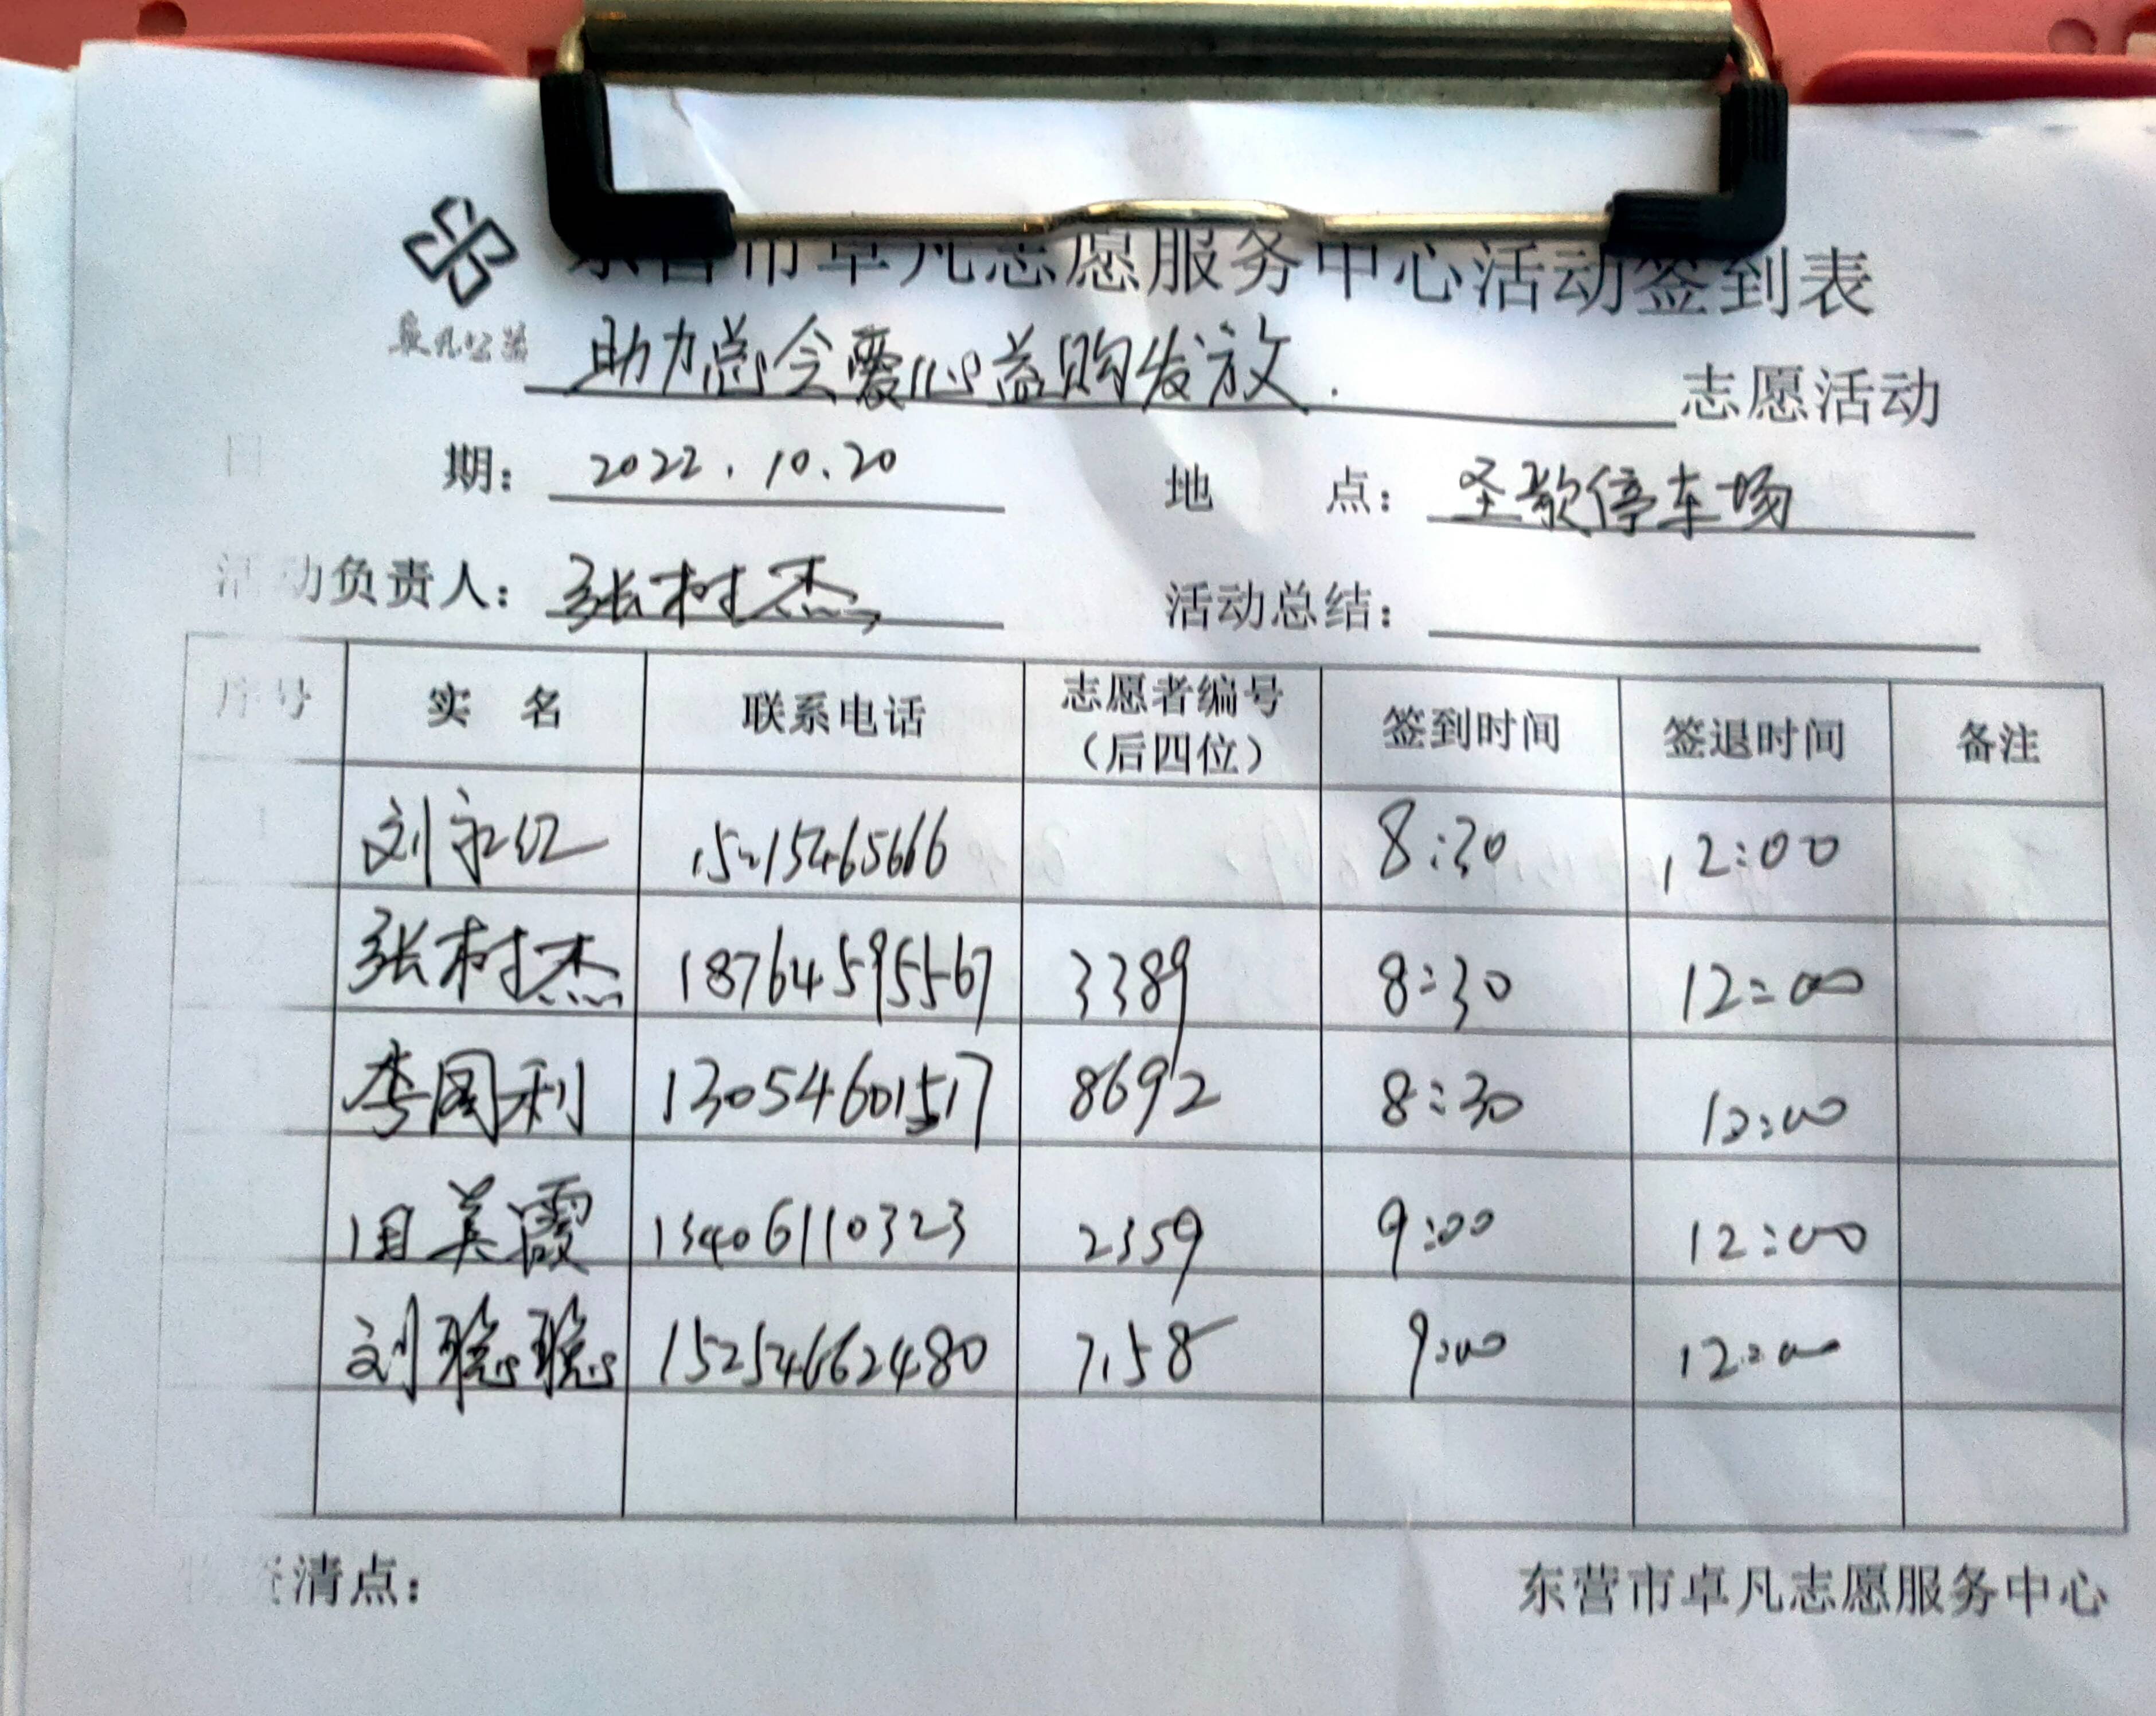 东营市卓凡志愿服务中心活动签到表
卓凡公益
助力总会爱心益购发放. 志愿活动
日 期： 2022.10.20 地 点： 圣歌停车场
活动负责人： 张树杰 活动总结：
序号 实 名 联系电话 志愿者编号（后四位） 签到时间 签退时间 备注
刘永红 15215465666 8:30 12:00
张树杰 18764595567 3389 8:30 12:00
李国利 13054601517 8692 8:30 12:00
英霞 13406110323 2359 9:00 12:00
刘聪聪 15254662480 7158 9:00 12:00
清点：
东营市卓凡志愿服务中心